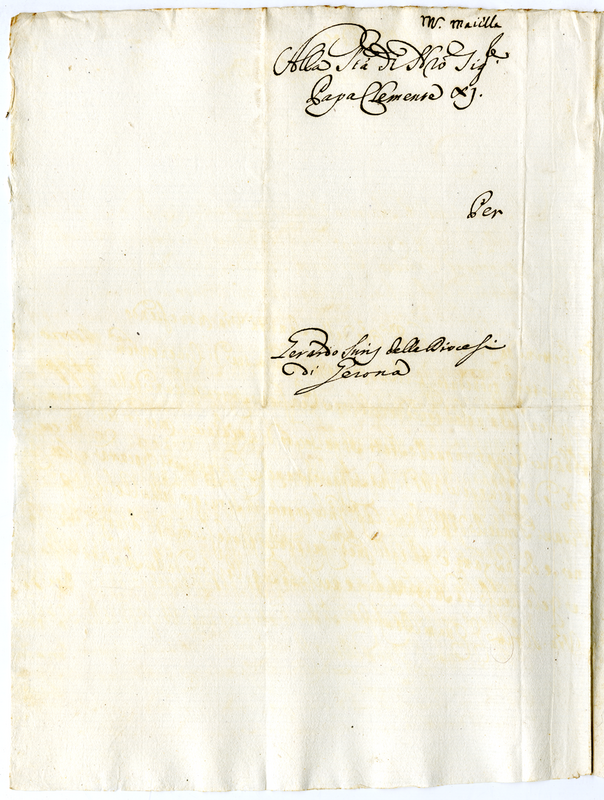 Mr. Maiella
Alla Stà di Nro Sigre
Papa Clemente XI.
Per
Gerardo Suris della Diocesi
di Gerona